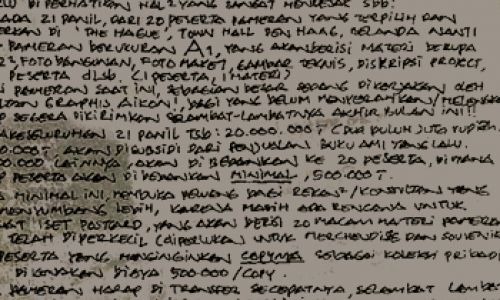 LU DI PERHATIKAN HAL2 YANG SANGAT MENDESAK SBB:
ADA 21 PANIL, DARI 20 PESERTA PAMERAN YANG TERPILIH DAN
ERKAN DI "THE HAGUE", TOWN HALL DEN HAAG, BELANDA NANTI
PAMERAN BERUKURAN A1, YANG AKAN BERISI MATERI BERUPA
R2, FOTO BANGUNAN, FOTO MAKET, GAMBAR TEKNIS, DISKRIPSI PROJECT,
PESERTA dLSB. (1 PESERTA, 1 MATERI)
PAMERAN SAAT INI, SEBAGIAN BESAR SEDANG DI KERJAKAN OLEH
GRAPHIS, AIKON!, BAGI YANG BELUM MENYERAHKAN/
SEGERA DIKIRIMKAN SELAMBAT-LAMBATNYA AKHIR BULAN INI!!
KESELURUHAN 21 PANIL TSB: 20.000.000 (DUA PULUH JUTA RUPIAH
AKAN DI SUBSIDI DARI PENJUALAN BUKU AMI YANG LALU.
00.000 LAINNYA AKAN DI BEBANKAN KE 20 PESERTA, DI MANA
PESERTA AKAN DI BEBANKAN MINIMAL, 500.000
MINIMAL INI, MEMBUKA PELUANG BAGI REKAN2/KONSULTAN YANG
MENYUMBANG LEBIH, KARENA MASIH ADA RENCANA UNTUK
1 SET POSTCARD, YANG AKAN BERISI 20 MACAM MATERI PAMERAN
TELAH DI PERKECIL (DIPERLUKAN UNTUK MERCHENDISE DAN SOUVENIR
PESERTA YANG MENGINGINKAN COPYNYA SEBAGAI KOLEKSI PRIBADI
DI KENAKAN BIAYA 500.000/COPY.
PAMERAN HARAP DI TRANSFER SECEPATNYA, SELAMBAT LAMBAT